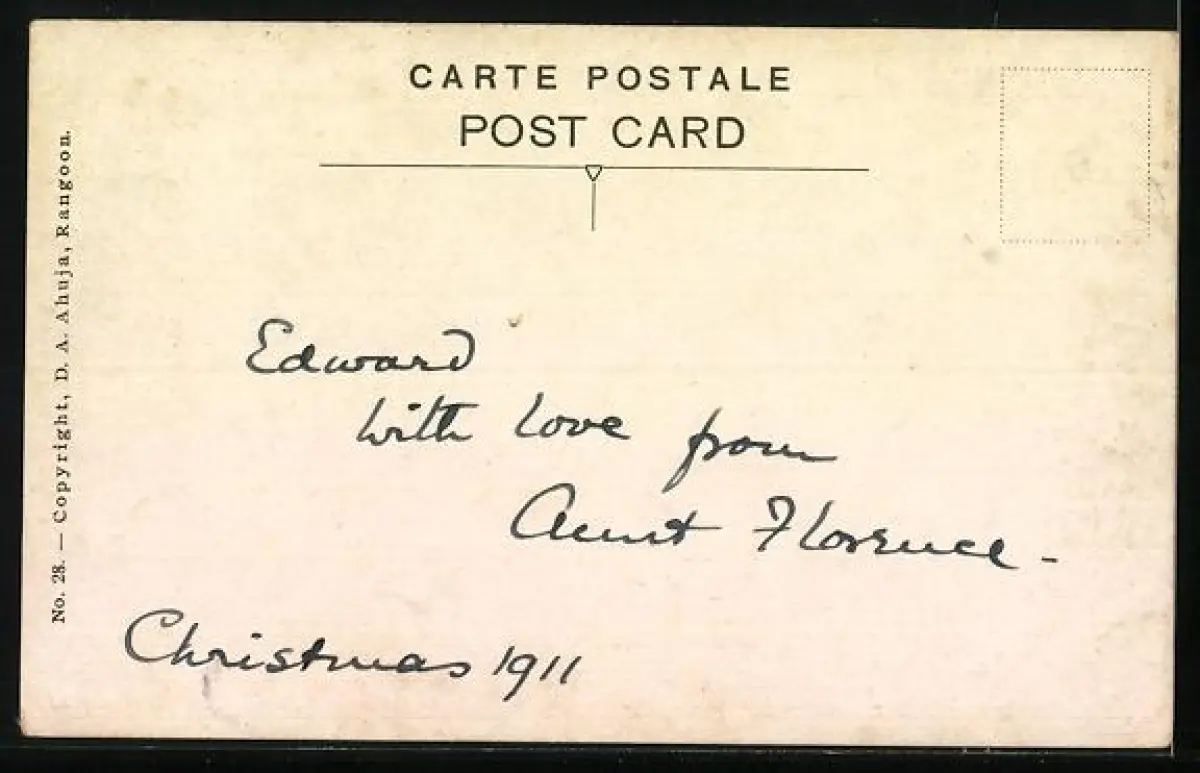 CARTE POSTALE
POST CARD
No. 28. — Copyright, D. A. Ahuja, Rangoon.
Edward
with love from
Aunt Florence -
Christmas 1911